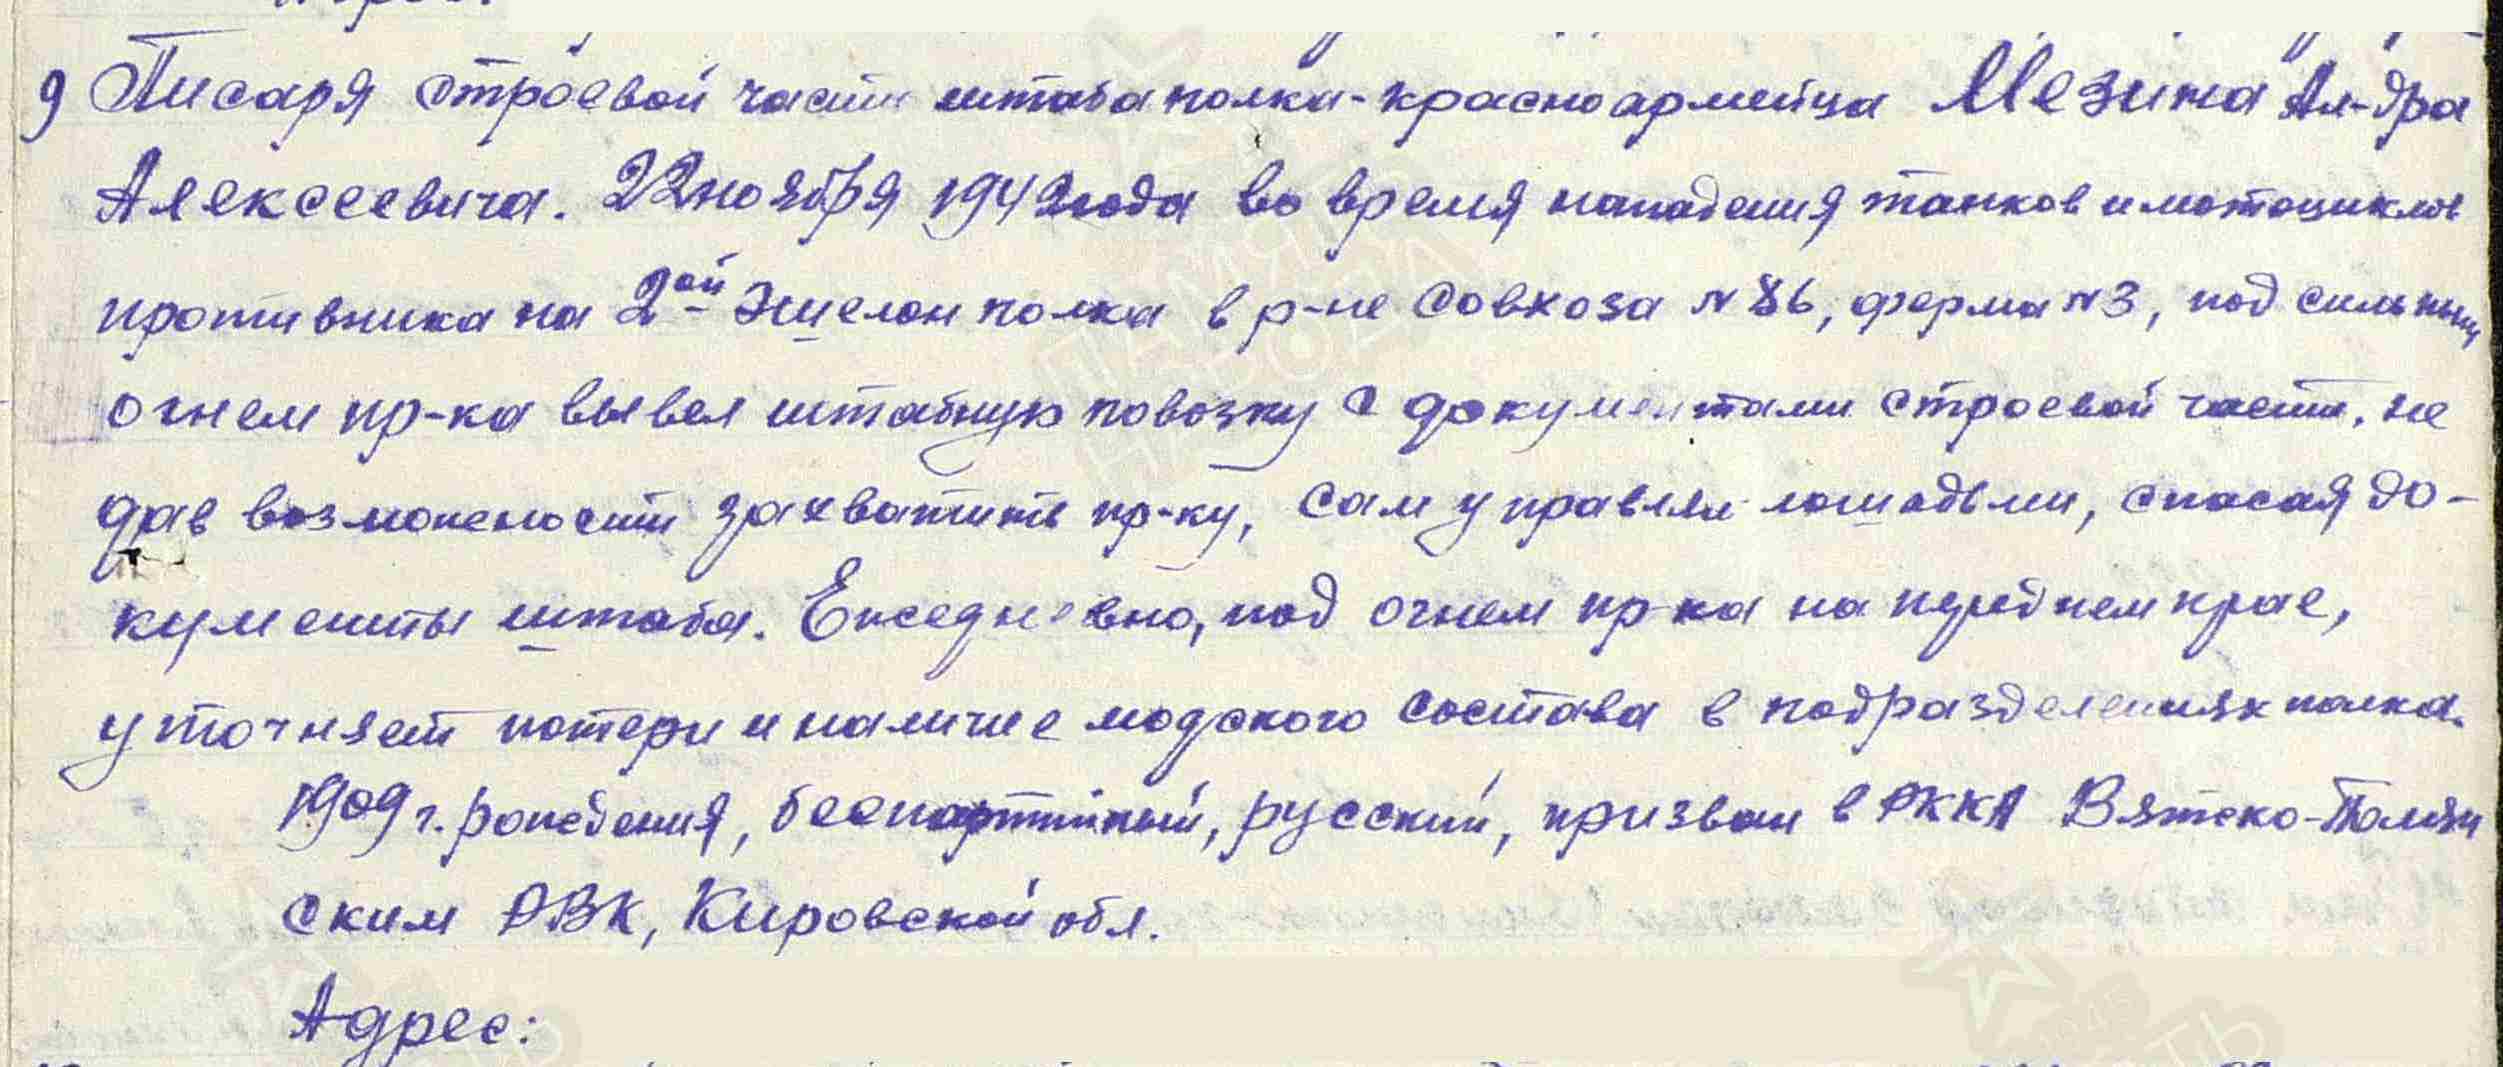 9 Писаря строевой части штаба полка-красноармейца Мезина Ал-дра
Алексеевича. 22 ноября 1942 года во время нападения танков и мотоциклов
противника на 2ой эшелон полка в р-не совхоза N 86, ферма N 3, под сильным
огнем пр-ка вывел штабную повозку с документами строевой части, не
дав возможности захватить пр-ку, сам управлял лошадьми, спасая до-
кументы штаба. Ежедневно, под огнем пр-ка на переднем крае,
уточняет потери и наличие людского состава в подразделениях полка.
1909 г. рождения, беспартийный, русский, призван в РККА Вятско-Полян
ским РВК, Кировской обл.
Адрес:
ПАМЯТЬ НАРОДА